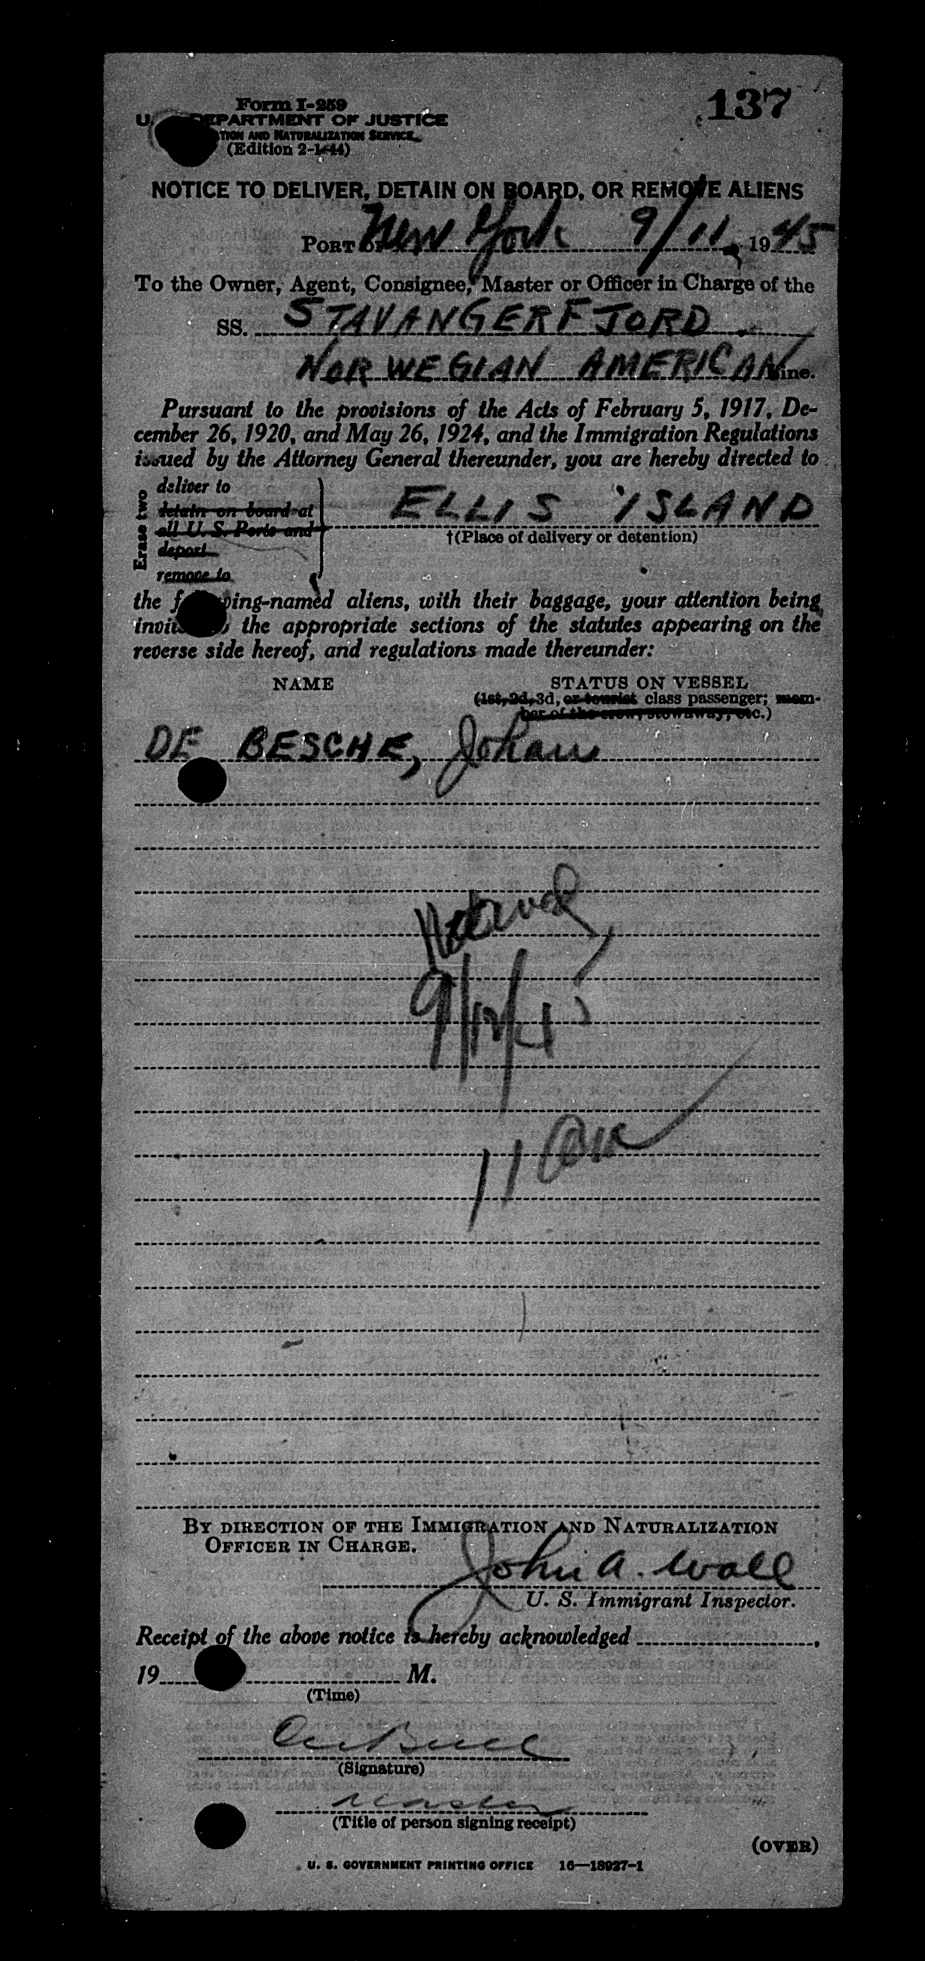 137
Form I-259
U. DEPARTMENT OF JUSTICE
AND NATURALIZATION SERVICE
(Edition 2-1-44)
NOTICE TO DELIVER, DETAIN ON BOARD, OR REMOVE ALIENS
PORT OF New York 9/11, 1945
To the Owner, Agent, Consignee, Master or Officer in Charge of the
SS. STAVANGERFJORD
NORWEGIAN AMERICAN Line.
Pursuant to the provisions of the Acts of February 5, 1917, De-
cember 26, 1920, and May 26, 1924, and the Immigration Regulations
issued by the Attorney General thereunder, you are hereby directed to
Erase two
deliver to
detain on board at
all U. S. Ports and
deport
remove to
ELLIS ISLAND
†(Place of delivery or detention)
the following-named aliens, with their baggage, your attention being
the appropriate sections of the statutes appearing on the
reverse side hereof, and regulations made thereunder:
NAME STATUS ON VESSEL
(1st, 2d, 3d, or tourist class passenger; mem-
ber of the crew, stowaway, etc.)
DE BESCHE, Johan
9/12/45
11
BY DIRECTION OF THE IMMIGRATION AND NATURALIZATION
OFFICER IN CHARGE.
John A. Wall
U. S. Immigrant Inspector.
Receipt of the above notice is hereby acknowledged
19 M.
(Time)
(Signature)
Master
(Title of person signing receipt)
(OVER)
U. S. GOVERNMENT PRINTING OFFICE 16—18927-1